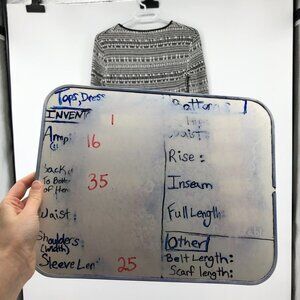 Tops, Dress
INVENT 1
Armp 16
back
To Bott 35
of Hem
Waist :
Shoulders
(width)
Sleeve Len 25
Bottoms
Waist :
Rise :
Inseam
Full Length:
Other
Belt Length:
Scarf length: